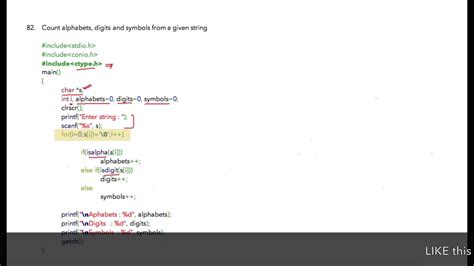 82. Count alphabets, digits and symbols from a given string
#include<stdio.h>
#include<conio.h>
#include<ctype.h>
main()
{
char *s;
int i, alphabets=0, digits=0, symbols=0;
clrscr();
printf("Enter string : ");
scanf("%s", s);
for(i=0;s[i]!='\0';i++)
if(isalpha(s[i]))
alphabets++;
else if(isdigit(s[i]))
digits++;
else
symbols++;
printf("\nAphabets : %d", alphabets);
printf("\nDigits : %d", digits);
printf("\nSymbols : %d", symbols);
getch();
}
LIKE this